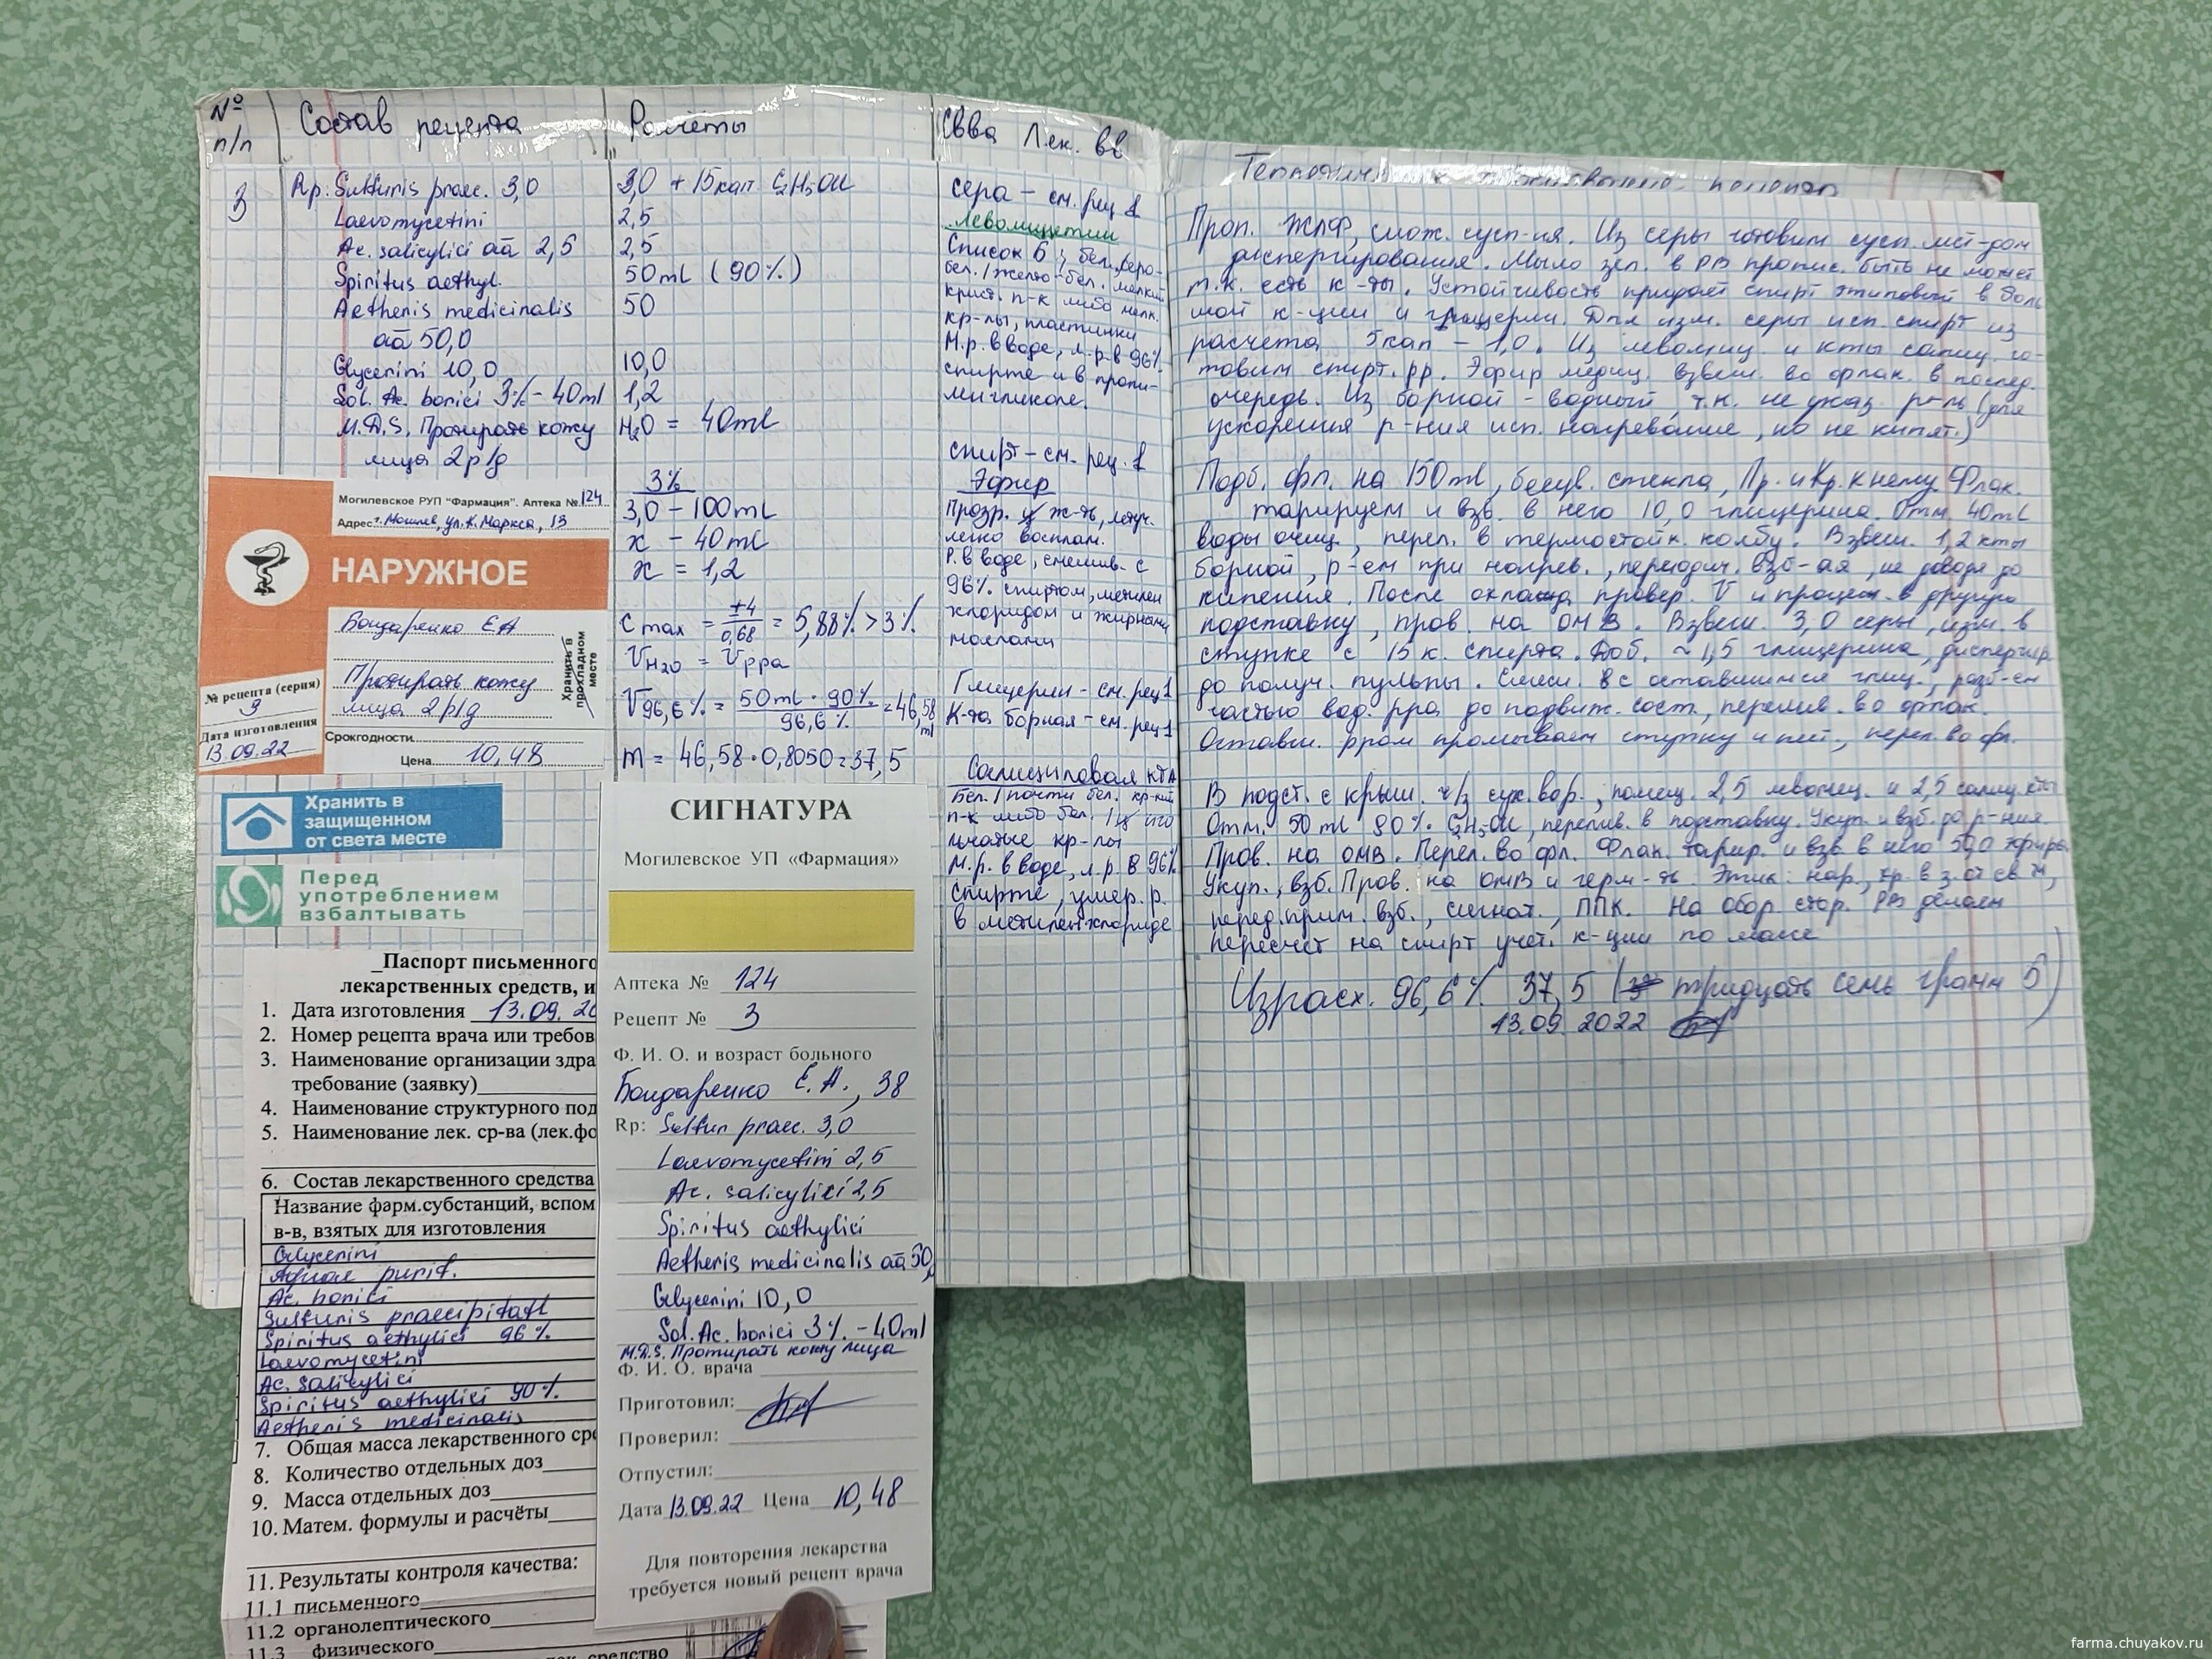 № п/п
Состав рецепта
Расчёты
Свва Лек. вв
3
Rp: Sulfuris praec. 3,0
Laevomycetini
Ac. salicylici aa 2,5
Spiritus aethyl.
Aetheris medicinalis
aa 50,0
Glycerini 10,0
Sol. Ac. borici 3% - 40ml
M.D.S. Протирать кожу
лица 2р/д
3,0 + 15кап C2H5OH
2,5
2,5
50ml (90%)
50
10,0
1,2
H2O = 40ml
3%
3,0 - 100ml
x - 40ml
x = 1,2
C max = ±4/0,68 = 5,88% > 3%
V H2O = V рра
V 96,6% = 50ml · 90% / 96,6% = 46,58 ml
m = 46,58 · 0,8050 = 37,5
сера - см. рец 1
Левомицетин
Список Б; бел, серо-
бел. / желто-бел. мелкий
крист. п-к либо мелк.
кр-лы, пластинки
М.р. в воде, л.р. в 96%
спирте и в пропи-
ленгликоле.
спирт - см. рец. 1
Эфир
Прозр. ж-ть, летуч.
легко воспл.
Р. в воде, смешив. с
96% спиртом, метилен
хлоридом и жирными
маслами
Глицерин - см. рец 1
К-та борная - см. рец 1
Салициловая кта
Бел. / почти бел. кр-кий
п-к либо бел. / иго
льчатые кр-лы
М.р. в воде, л.р. в 96%
спирте, умер. р.
в метиленхлориде
Проп. ЖЛФ, слож. сусп-ия. Из серы готовим сусп. мет-дом
диспергирования. Мыло зел. в РВ пропис. быть не может
т.к. есть к-ты. Устойчивость придает спирт этиловый в боль
шой к-ции и глицерин. Для изм. серы исп. спирт из
расчета 5кап - 1,0. Из левомиц и кты салиц. го-
товим спирт. рр. Эфир медиц. взвеш. во флак. в послед.
очередь. Из борной - водный, т.к. не указ. р-ль (для
ускорения р-ния исп. нагревание, но не кипят.)
Подб. фл. на 150ml, бесцв. стекла, Пр. и Кр. к нему. Флак.
тарируем и взв. в него 10,0 глицерина. Отм 40ml
воды очищ, перел. в термостойк. колбу. Взвеш. 1,2 кты
борной, р-ем при нагрев., периодич. взб-ая, не доводя до
кипения. После охлажд провер. V и процеж. в другую
подставку, пров. на ОМВ. Взвеш. 3,0 серы, изм. в
ступке с 15 к. спирта. Доб. ~1,5 глицерина, диспергир
до получ. пульпы. Смеш. с оставшимся глиц., разб-ем
частью вод. рра до подвиж. сост., перелив. во флак.
Оставш. рром промываем ступку и пест., перел. во фл.
В подст. с крыш. ч/з сух. вор., помещ. 2,5 левомиц. и 2,5 салиц кты
Отм. 50 ml 90% C2H5OH, перелив. в подставку. Укуп. и взб. до р-ния.
Пров. на ОМВ. Перел. во фл. Флак. тарир. и взв в него 50,0 эфира
Укуп., взб. Пров. на ОМВ и герм-ть. Этик: нар., хр. в з. от св. м,
перед. прим. взб., сигнат., ППК. На обор. стор. РВ делаем
пересчет на спирт учет. к-ции по массе
Израсх. 96,6% 37,5 (тридцать семь грамм 5)
13.09.2022
Могилевское РУП "Фармация". Аптека № 124
Адрес г. Могилев, ул. К. Маркса, 13
НАРУЖНОЕ
Бондаренко ЕА
Протирать кожу
лица 2р/д
Хранить в прохладном месте
№ рецепта (серия)
3
Дата изготовления
13.09.22
Срок годности
Цена 10,48
Хранить в
защищенном
от света месте
Перед
употреблением
взбалтывать
_Паспорт письменного
лекарственных средств, и
1. Дата изготовления 13.09.20
2. Номер рецепта врача или требов
3. Наименование организации здра
требование (заявку)
4. Наименование структурного под
5. Наименование лек. ср-ва (лек.фо
6. Состав лекарственного средства
Название фарм.субстанций, вспом
в-в, взятых для изготовления
Glycerini
Aquae purif.
Ac. borici
Sulfuris praecipitati
Spiritus aethylici 96%
Laevomycetini
Ac. salicylici
Spiritus aethylici 90%
Aetheris medicinalis
7. Общая масса лекарственного сре
8. Количество отдельных доз
9. Масса отдельных доз
10. Матем. формулы и расчёты
11. Результаты контроля качества:
11.1 письменного
11.2 органолептического
11.3 физического
средство
СИГНАТУРА
Могилевское УП «Фармация»
Аптека № 124
Рецепт № 3
Ф. И. О. и возраст больного
Бондаренко Е.А., 38
Rp: Sulfur praec. 3,0
Laevomycetini 2,5
Ac. salicylici 2,5
Spiritus aethylici
Aetheris medicinalis aa 50,
Glycerini 10,0
Sol. Ac. borici 3% - 40ml
M.D.S. Протирать кожу лица
Ф. И. О. врача
Приготовил:
Проверил:
Отпустил:
Дата 13.09.22 Цена 10,48
Для повторения лекарства
требуется новый рецепт врача
farma.chuyakov.ru